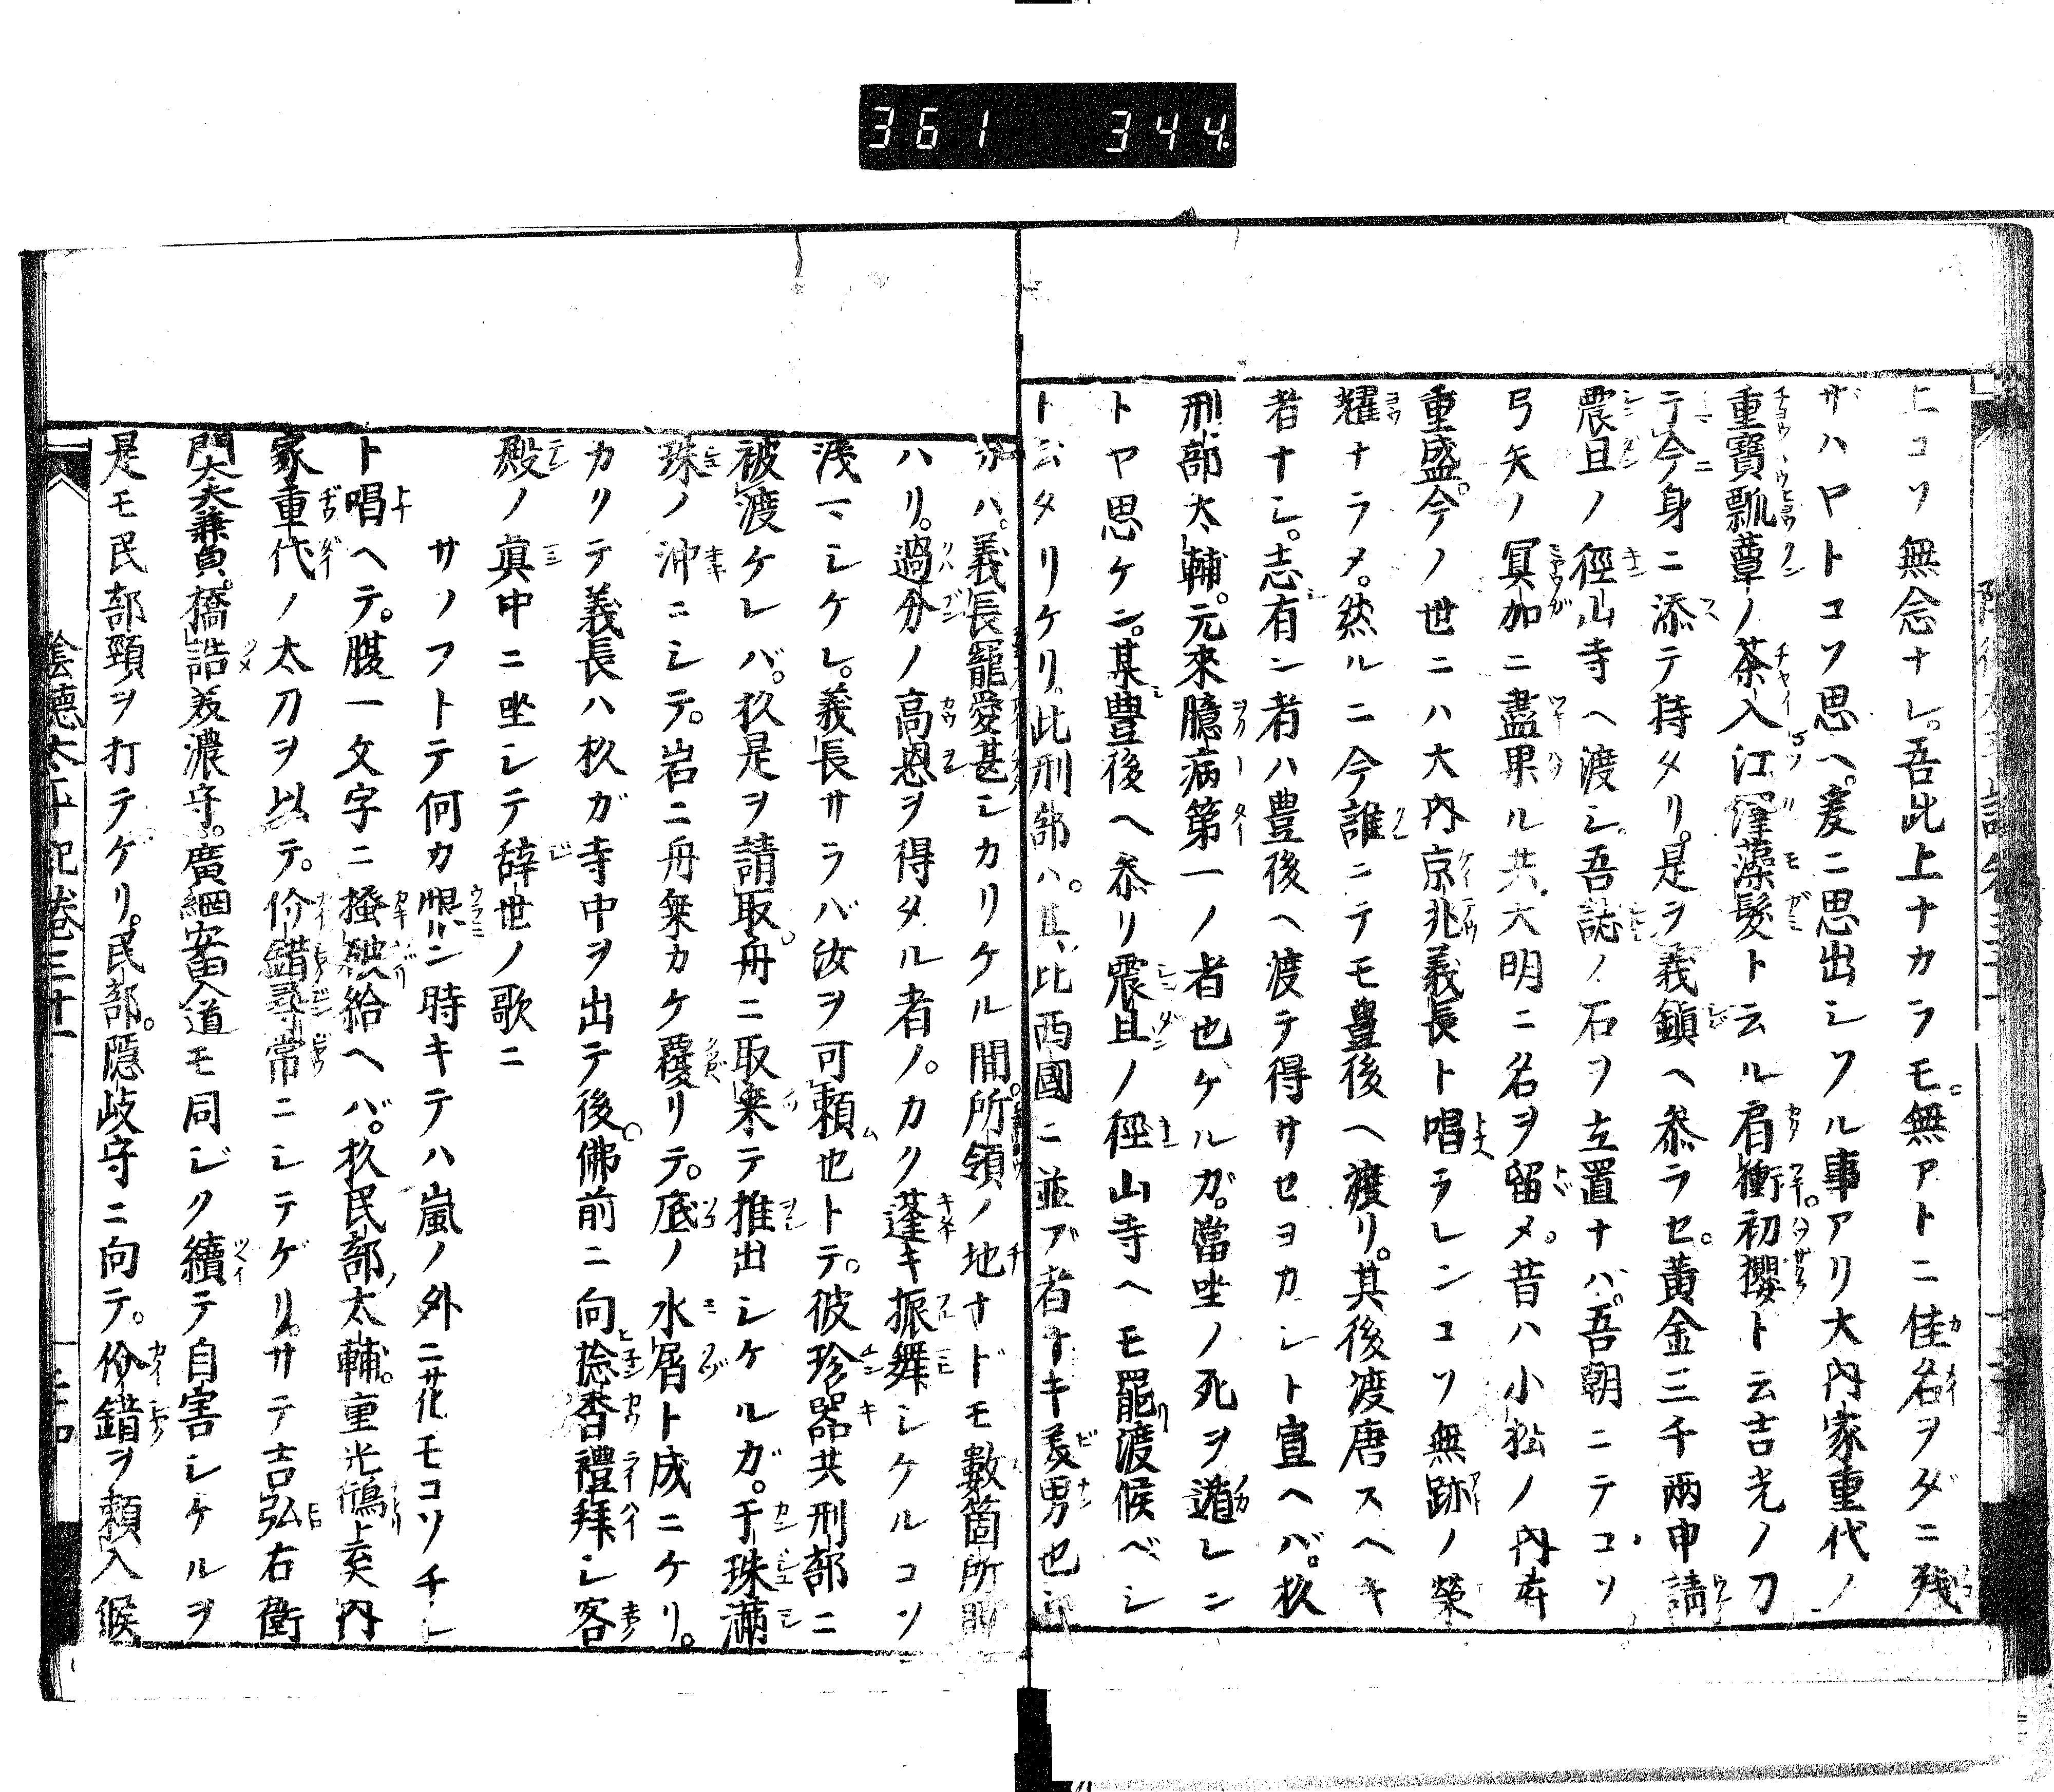 361 344.
ヒコソ無念ナレ。吾此上ナカラモ。無アトニ佳名ヲダニ残
サハヤトコソ思ヘ。爰ニ思出シツル事アリ大内家重代ノ
重寳瓢蕈ノ茶入江澤藻髪ト云ル肩衝初櫻ト云吉光ノ刀
于今身ニ添テ持タリ。是ヲ義鎮ヘ參ラセ。黄金三千兩申請
震旦ノ徑山寺ヘ渡シ。吾誌ノ石ヲ立置ナバ。吾朝ニテコソ
弓矢ノ冥加ニ盡果ル共大明ニ名ヲ留メ。昔ハ小松ノ内府
重盛。今ノ世ニハ大内京兆義長ト唱ラレンコソ無跡ノ榮
耀ナラメ。然ルニ今誰ニテモ豊後ヘ渡リ。其後渡唐スヘキ
者ナシ。志有ン者ハ豊後ヘ渡テ得サセヨカシト宣ヘバ。杦
刑部太輔。元來臆病第一ノ者也ケルガ。當坐ノ死ヲ遁レン
トヤ思ケン。某豊後ヘ參リ震旦ノ徑山寺ヘモ罷渡候ベシ
ト云タリケリ。此刑部ハ。比西國ニ並ブ者ナキ美男也
ハ。義長寵愛甚シカリケル間。所領ノ地ナドモ數箇所
ハリ。過分ノ高恩ヲ得タル者ノ。カク蓬キ振舞シケルコソ
浅マシケレ。義長サラバ汝ヲ可頼也トテ。彼珍器共刑部ニ
被渡ケレバ。杦是ヲ請取。舟ニ取乗テ推出シケルガ。于珠滿
珠ノ沖ニシテ。岩ニ舟乗カケ覆リテ。底ノ水屑ト成ニケリ。
カリテ義長ハ杦ガ寺中ヲ出テ後。佛前ニ向捻香禮拜シ客
殿ノ眞中ニ坐シテ辞世ノ歌ニ
サソフトテ何カ恨ン時キテハ嵐ノ外ニ花モコソチレ
ト唱ヘテ。腹一文字ニ掻破給ヘバ。杦民部ノ太輔。重光鴈上矣内
家重代ノ太刀ヲ以テ。价錯尋常ニシテゲリ。サテ吉弘右衛
門太夫兼貞。橋詰美濃守。廣綱安畜入道モ同ジク續テ自害シケルヲ
是モ民部頸ヲ打テゲリ。民部。隠岐守ニ向テ。价錯ヲ頼入候
陰德太平記卷三十一